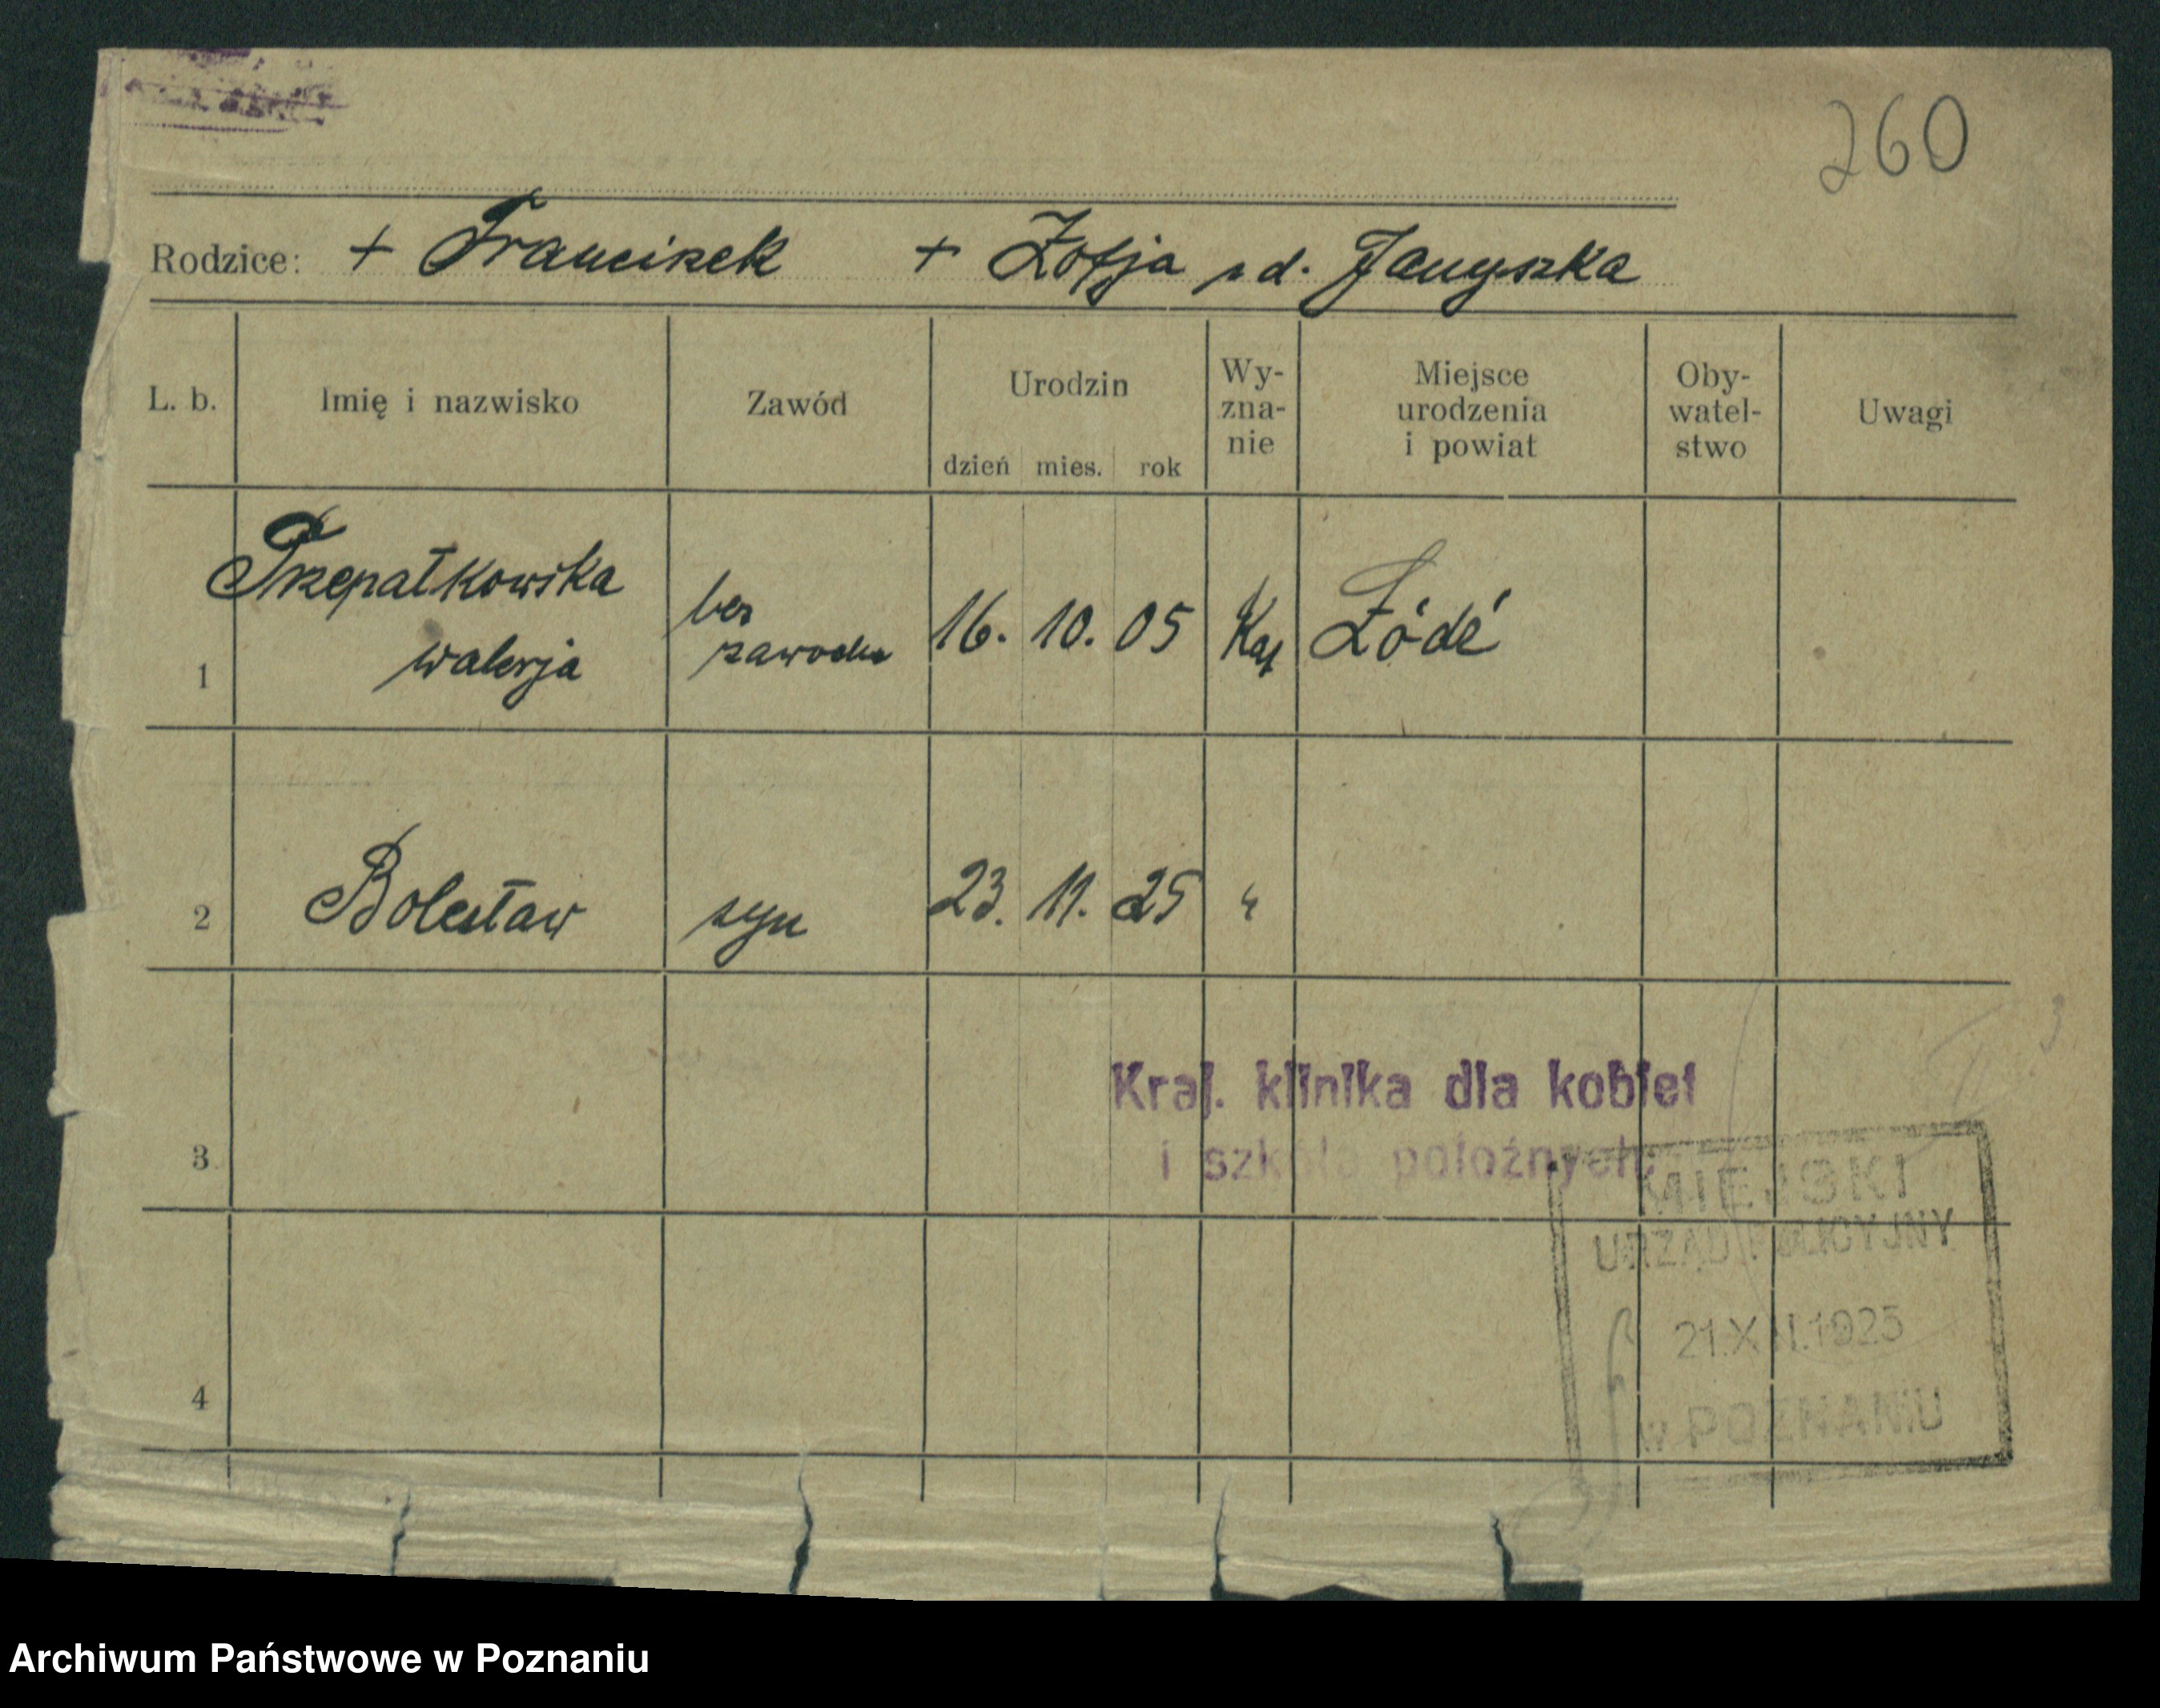 260
Rodzice: + Franciszek + Zofja z d. Januszka
L. b. Imię i nazwisko Zawód Urodzin dzień mies. rok Wy-zna-nie Miejsce urodzenia i powiat Oby-watel-stwo Uwagi
Trzepałkowska
Walerja
bez
zawodu
1 16. 10. 05 Kat Łódź
2 Bolesław syn 23. 11. 25 "
3
Kraj. klinika dla kobiet
i szkoła położnych
MIEJSKI
URZĄD POLICYJNY
21.XII.1925
w POZNANIU
4
Archiwum Państwowe w Poznaniu